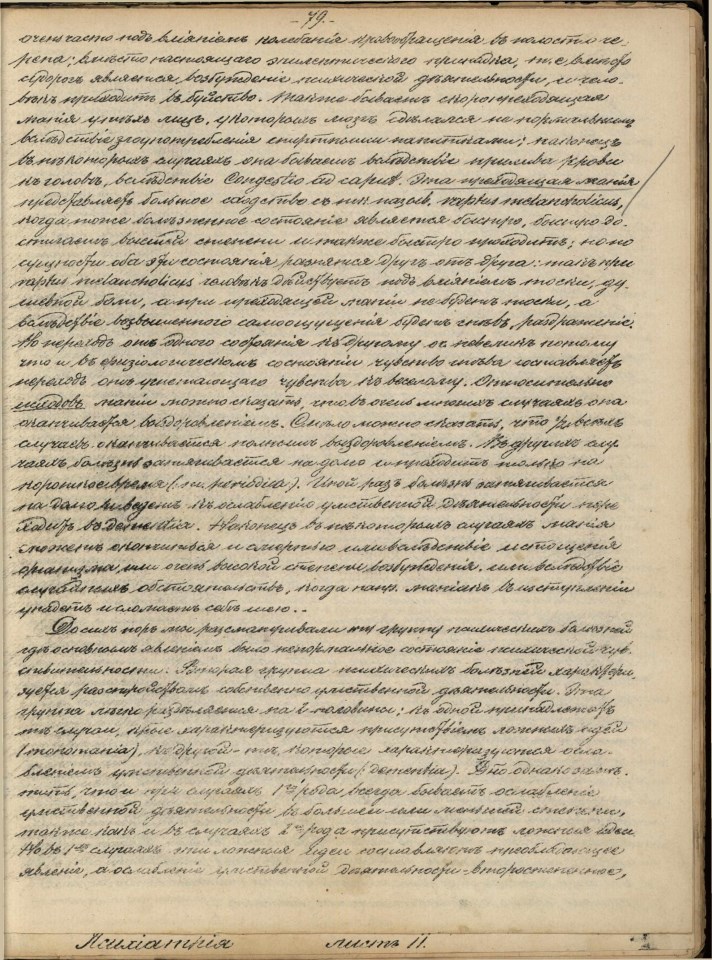 - 79. -
очень часто подъ вліяніемъ колебанія кровообращенія въ полости че-
репа; вмѣсто настоящаго эпилептическаго припадка, т. е. вмѣсто
судорогъ является возбужденіе психической дѣятельности, и чело-
вѣкъ приходитъ въ буйство. Также бываетъ скоропреходящая
манія у тѣхъ лицъ, у которыхъ мозгъ сдѣлался не нормальнымъ
вслѣдствіе злоупотребленія спиртными напитками; наконецъ
въ нѣкоторыхъ случаяхъ она бываетъ вслѣдствіе прилива крови
къ головѣ, вслѣдствіе Congestio ad caput. Эта преходящая манія
представляетъ большое сходство съ такъ назыв. raptus melancholicus,
когда тоже болѣзненное состояніе является быстро, быстро до-
стигаетъ высшей степени и также быстро проходитъ; но по
сущности оба эти состоянія разнятся другъ отъ друга: такъ при
raptus melancholicus человѣкъ дѣйствуетъ подъ вліяніемъ тоски, ду-
шевной боли, а при преходящей маніи не будетъ тоски, а
вслѣдствіе возвышеннаго самоощущенія будетъ гнѣвъ, раздраженіе.
Но переходъ отъ одного состоянія къ другому оч. невеликъ потому
что и въ физіологическомъ состояніи чувство гнѣва составляетъ
переходъ отъ угнетающаго чувства къ веселому. Относительно
исходовъ маніи можно сказать, что въ очень многихъ случаяхъ она
оканчивается выздоровленіемъ. Смѣло можно сказать, что всѣхъ
случаевъ оканчивается полнымъ выздоровленіемъ. Въ другихъ слу-
чаяхъ болѣзнь затягивается на долго и проходитъ только на
короткое время (periodica). Иной разъ болѣзнь затягивается
на долго и ведетъ къ ослабленію умственной дѣятельности пере-
ходитъ въ dementia. Наконецъ въ нѣкоторыхъ случаяхъ манія
можетъ окончиться и смертью или вслѣдствіе истощенія
организма, или очень высокой степени возбужденія. или вслѣдствіе
случайныхъ обстоятельствъ, когда напр. маніакъ въ изступленіи
упадетъ и сломаетъ себѣ шею. -
До сихъ поръ мы разсматривали ту группу психическихъ болѣзней
гдѣ основнымъ явленіемъ было ненормальное состояніе психической чув-
ствительности. Вторая группа психическихъ болѣзней характери-
зуется разстройствомъ собственно умственной дѣятельности. Эта
группа легко раздѣляется на 2 половины; къ одной принадлежатъ
тѣ случаи, кои характеризуются присутствіемъ ложныхъ идей
(monomania), къ другой - тѣ, которые характеризуются осла-
бленіемъ умственной дѣятельности (dementia). Но однако замѣ-
тить, что и при случаяхъ 1го рода всегда бываетъ ослабленіе
умственной дѣятельности въ большей или меньшей степени,
также какъ и въ случаяхъ 2го рода присутствуютъ ложныя идеи
Но въ 1хъ случаяхъ эти ложныя идеи составляютъ преобладающее
явленіе, а ослабленіе умственной дѣятельности - второстепенное,
Психіатрія листъ 11.